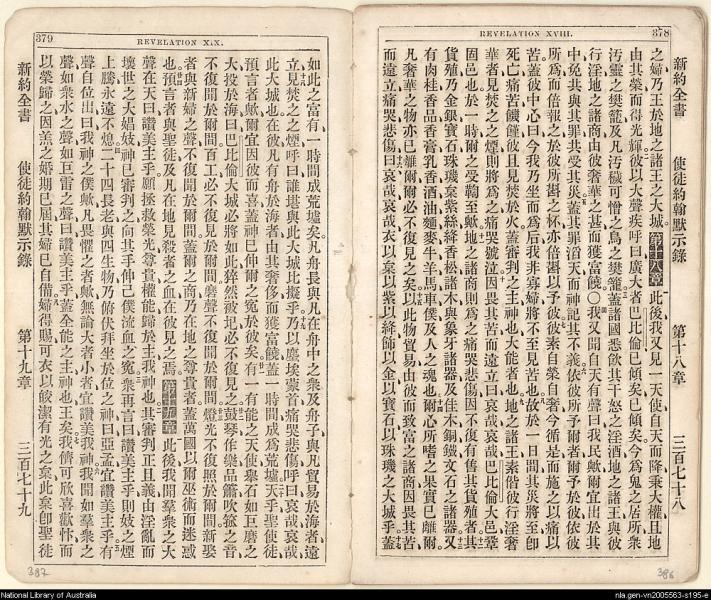 REVELATION XVIII. 378
新約全書 使徒約翰默示錄 第十八章 三百七十八
之婦乃王於地之諸王之大城第十八章此後我又見一天使自天而降秉大權且地
由其榮而得光輝彼以大聲疾呼曰廣大者巴比倫已傾矣已傾矣今爲鬼之居所衆
汚靈之樊籠及凡汚穢可憎之鳥之樊籠蓋諸國悉飲其干怒之淫酒地之諸王與彼
行淫地之諸商由彼奢華之甚而獲富饒〇我又聞自天有聲曰我民歟爾宜出於其
中免共與其罪共受其災蓋其罪滔天而神記其不義依彼所予爾者爾予於彼依彼
所爲而倍報之於彼所斟之杯亦倍斟以予彼彼素自榮自奢今循是而施之以痛以
苦蓋彼中心曰今我乃坐而爲后我非寡婦將不至見苦也故於一日間其災將至卽
死亡痛苦饑饉彼且見焚於火蓋審判之主神也大能者也地之諸王素偕彼行淫奢
華者見焚之之煙則將爲之痛哭號泣因畏其苦而遠立曰哀哉哀哉巴比倫大邑鞏
固邑也於一時爾之受鞫至歟地之諸商則爲之痛哭悲傷因不復有售其貨殖者其
貨殖乃金銀寶石珠璣枲紫絲絳香松諸木與象牙諸器及佳木銅鐵文石之諸器又
有肉桂香品香膏乳香酒油麵麥牛羊馬車僕及人之魂也爾心所嗜之果實已離爾
凡奢華之物亦已離爾爾必不復見之矣以此物貿易由彼而致富之諸商因畏其苦
而遠立痛哭悲傷曰哀哉哀哉衣以枲以紫以絳飾以金以寶石以珠璣之大城乎蓋
386
379 REVELATION XIX.
如此之富有一時間成荒墟矣凡舟長與凡在舟中之衆及舟子與凡貿易於海者遠
立見焚之之煙呼曰誰堪與此大城比擬乎乃以塵埃蒙首痛哭悲傷呼曰哀哉哀哉
此大城也在彼凡有舟於海者由其奢侈而獲富饒蓋一時間成爲荒墟天乎聖使徒
預言者歟爾宜因彼而喜蓋神已伸爾之寃於彼矣有一有能之天使舉石如巨磨之
大投於海曰巴比倫大城必將如此猝然被圮必不復見之鼓琴作樂品簫吹箛之音
不復聞於爾間百工必不復見於爾間磨聲不復聞於爾間燈光不復照於爾間新娶
者與新婦之聲不復聞於爾間蓋爾之商乃在地之尊貴者蓋萬國以爾巫術而迷惑
也預言者與聖徒及凡在地見殺者之血在彼見之焉第十九章此後我聞羣衆之大
聲在天曰讚美主乎願拯救榮光尊貴權能歸於主我神也其審判正且義由淫亂而
壞世之大娼妓神已審判之向其手伸己僕流血之寃衆再言曰讚美主乎則妓之煙
上騰永遠不熄二十四長老與四生物乃俯伏拜坐於位之神曰亞孟宜讚美主乎有
聲自位出曰我神之僕歟凡畏懼之者歟無論大者小者宜讚美我神我聞如羣衆之
聲如衆水之聲如巨雷之聲曰讚美主乎蓋全能之主神也王矣我儕可欣喜歡忭而
以榮歸之因羔之婚期已屆其婦已自備婦得賜可衣以皎潔有光之枲此枲卽聖徒
新約全書 使徒約翰默示錄 第十九章 三百七十九
387
National Library of Australia
nla.gen-vn2005563-s195-e